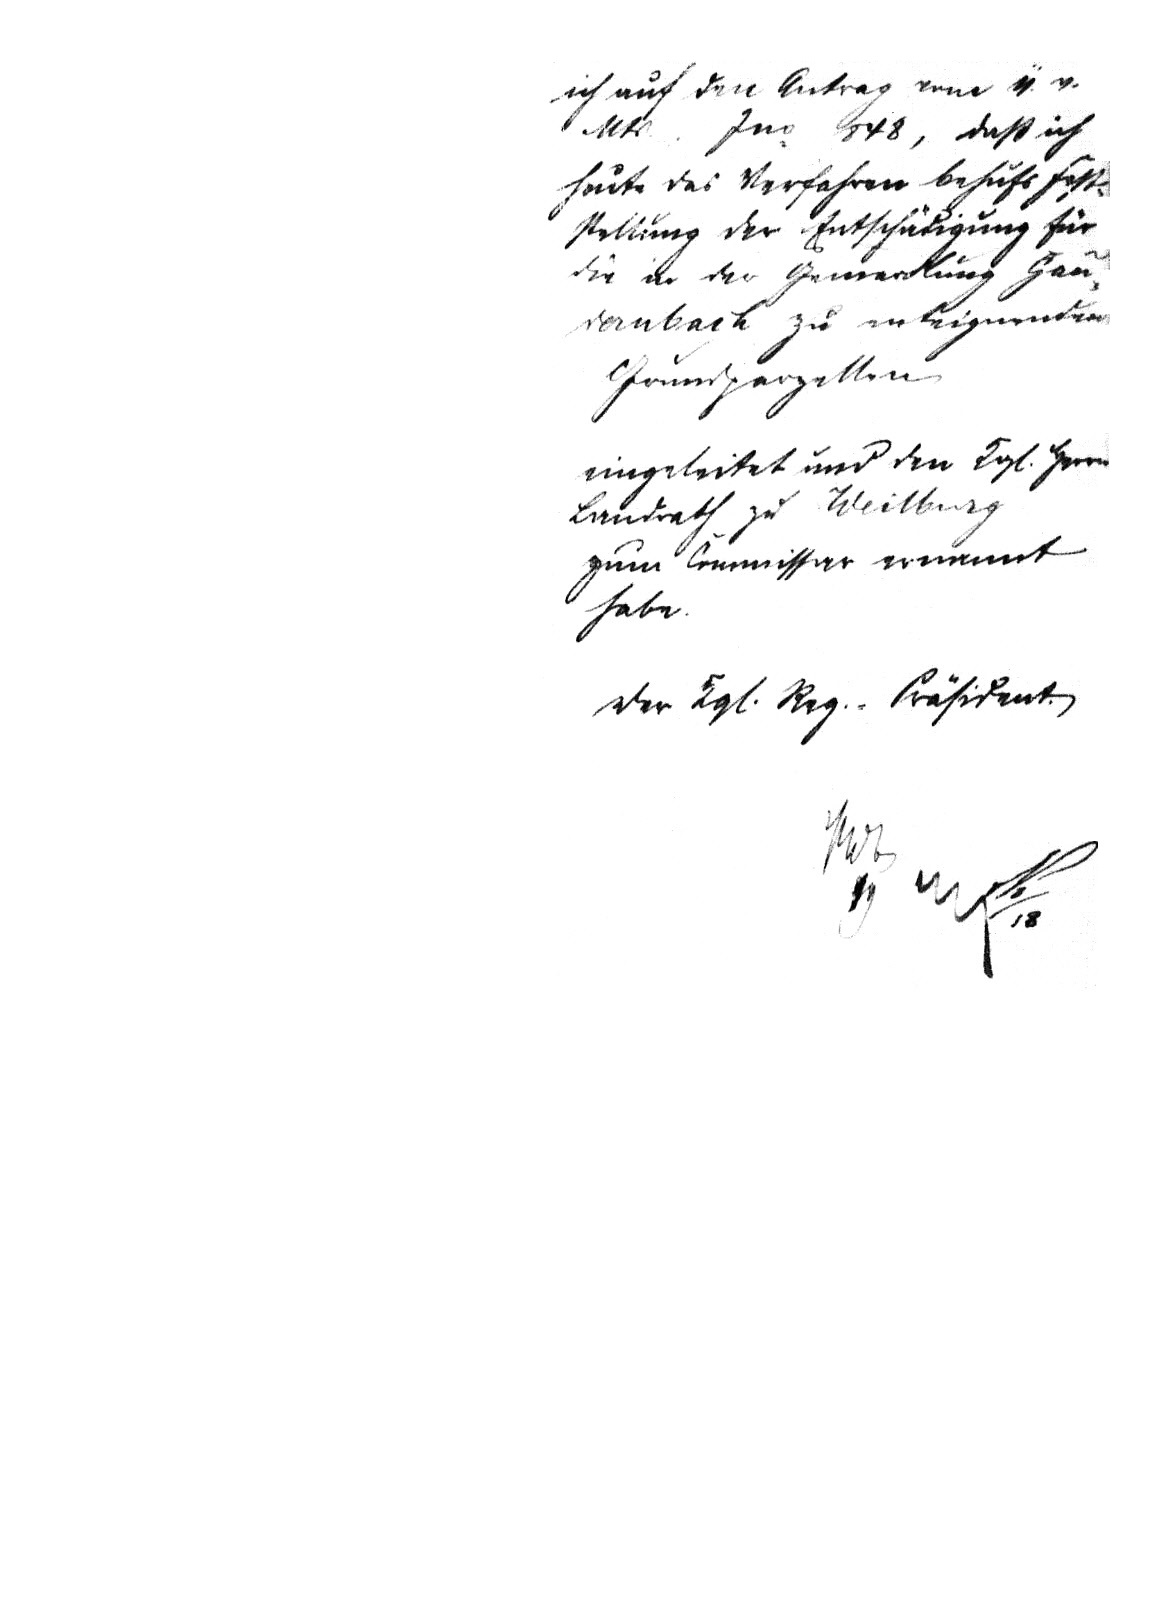 ich auf den Antrag vom v.
Mts. Jno 848, daß ich
heute das Verfahren behufs Fest-
stellung der Entschädigung für
die in der Gemarkung Gau-
dernbach zu enteignenden
Grundparzellen
eingeleitet und den Kgl. Herrn
Landrath zu Weilburg
zum Commissar ernannt
habe.
Der Kgl. Reg.- Präsident.
18